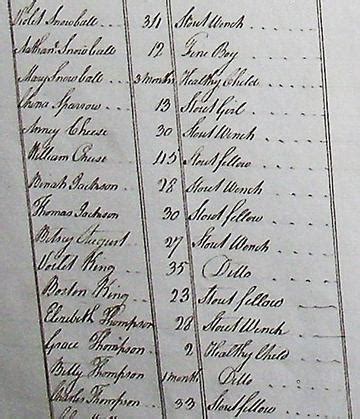 Violet Snowball 31 Stout Wench
Nathan Snowball 12 Fine Boy
Mary Snowball 3 months Healthy Child
China Sparrow 13 Stout Girl
Anney Cheese 30 Stout Wench
William Cheese 45 Stout fellow
Binah Jackson 28 Stout Wench
Thomas Jackson 30 Stout fellow
Betsey August 27 Stout Wench
Violet King 35 Ditto
Boston King 23 Stout fellow
Elizabeth Thompson 28 Stout Wench
Grace Thompson 2 Healthy Child
Betty Thompson 1 month Ditto
Charles Thompson 33 Stout fellow